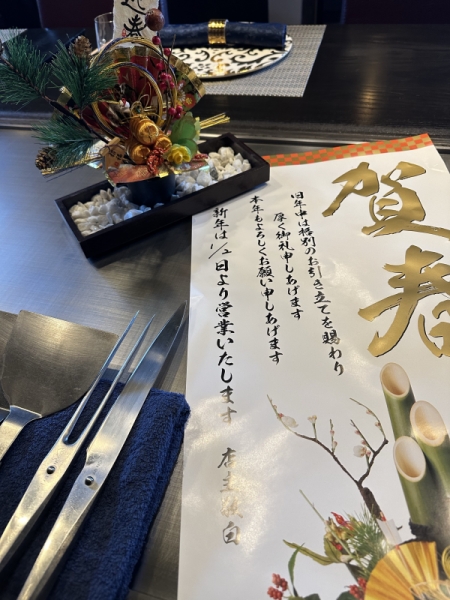 迎春
賀春
旧年中は格別のお引き立てを賜わり
厚く御礼申しあげます
本年もよろしくお願い申しあげます
新年は1/2日より営業いたします 店主敬白